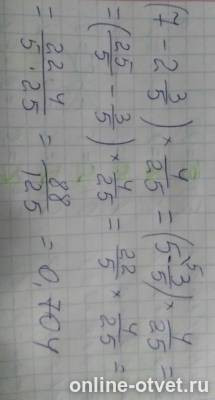 (7 - 2 3/5) × 4/25 = (5 5/5 - 3/5) × 4/25 =
= (25/5 - 3/5) × 4/25 = 22/5 × 4/25 =
= 22·4/5·25 = 88/125 = 0,704
online-otvet.ru